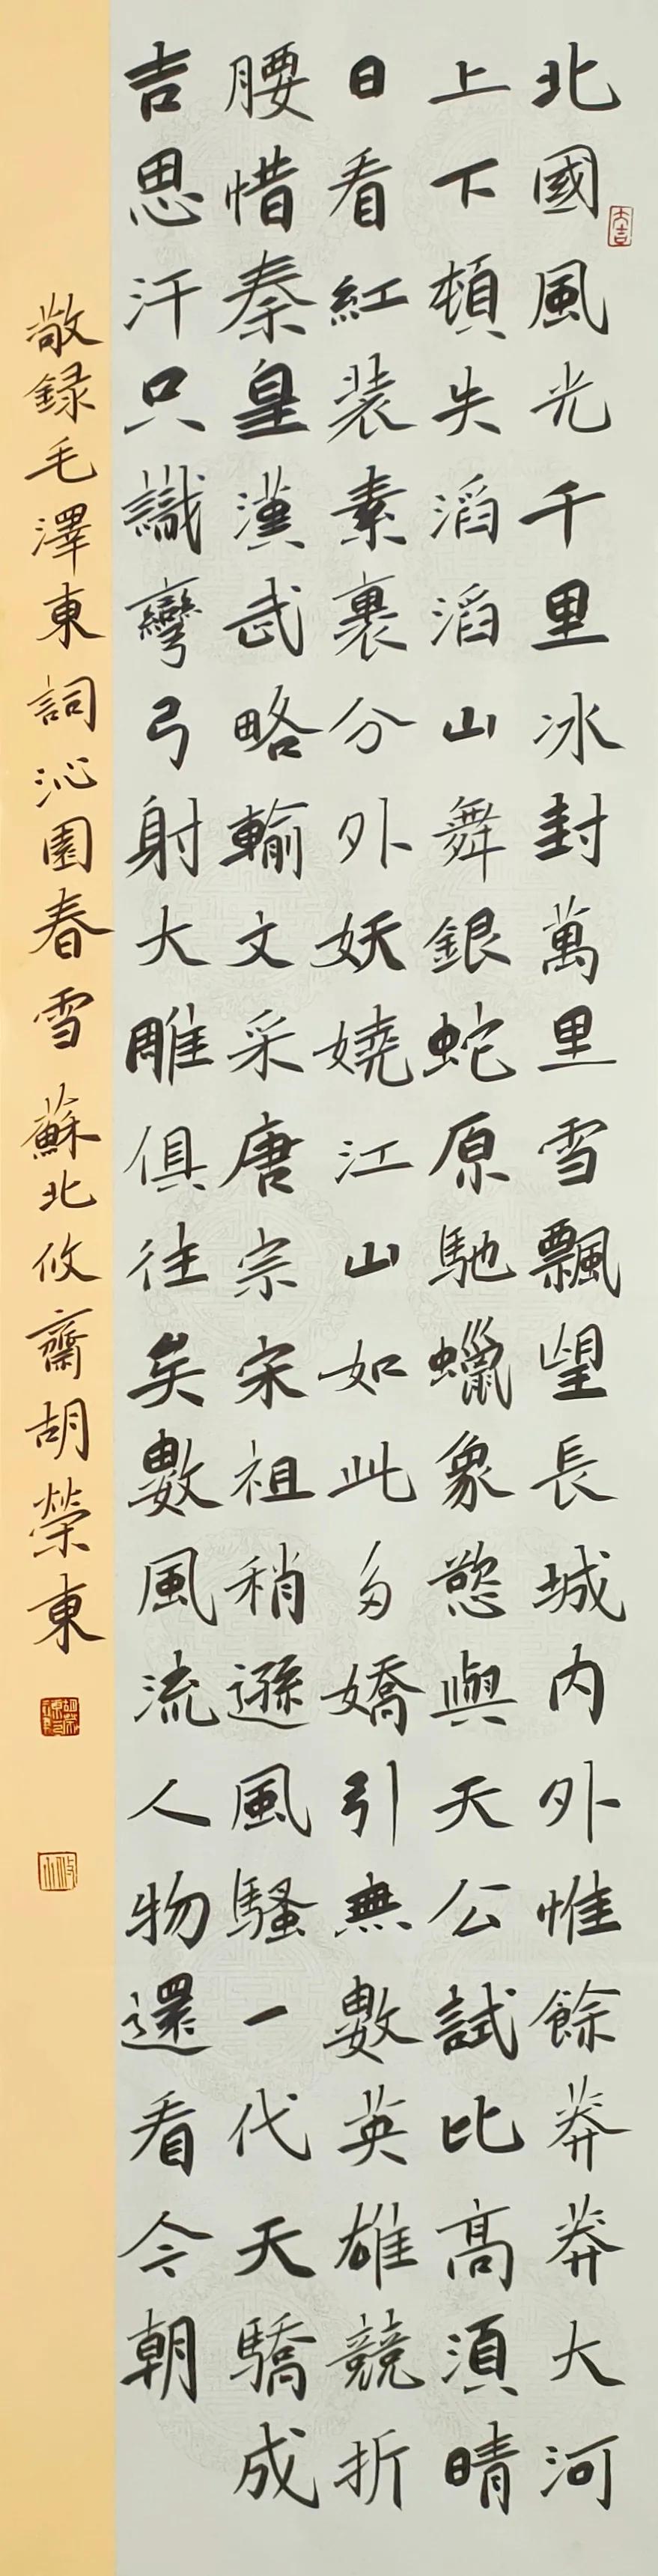 北國風光千里冰封萬里雪飄望長城内外惟餘莽莽大河
上下頓失滔滔山舞銀蛇原馳蠟象慾與天公試比高須晴
日看紅裝素裹分外妖嬈江山如此多嬌引無數英雄競折
腰惜秦皇漢武略輸文采唐宗宋祖稍遜風騷一代天驕成
吉思汗只識彎弓射大雕俱往矣數風流人物還看今朝
敬録毛澤東詞沁園春雪蘇北攸齋胡榮東
大吉